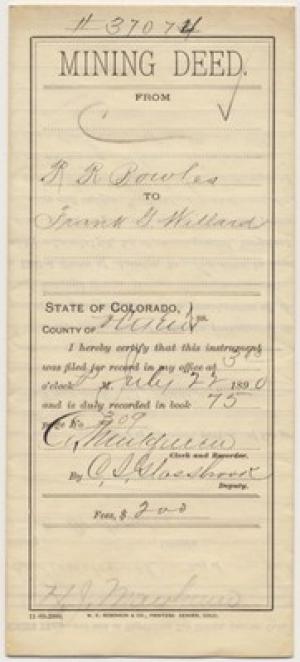 # 37074
MINING DEED.
FROM
R R Bowles
TO
Frank G. Willard
STATE OF COLORADO,
COUNTY OF
ss.
I hereby certify that this instrument
was filed for record in my office at
o'clock P. M. July 22 1890
and is duly recorded in book 75
page No. 309
Clerk and Recorder.
By C. S. Glassbrook
Deputy.
Fees, $ 200
W. F. ROBINSON & CO., PRINTERS DENVER, COLO.